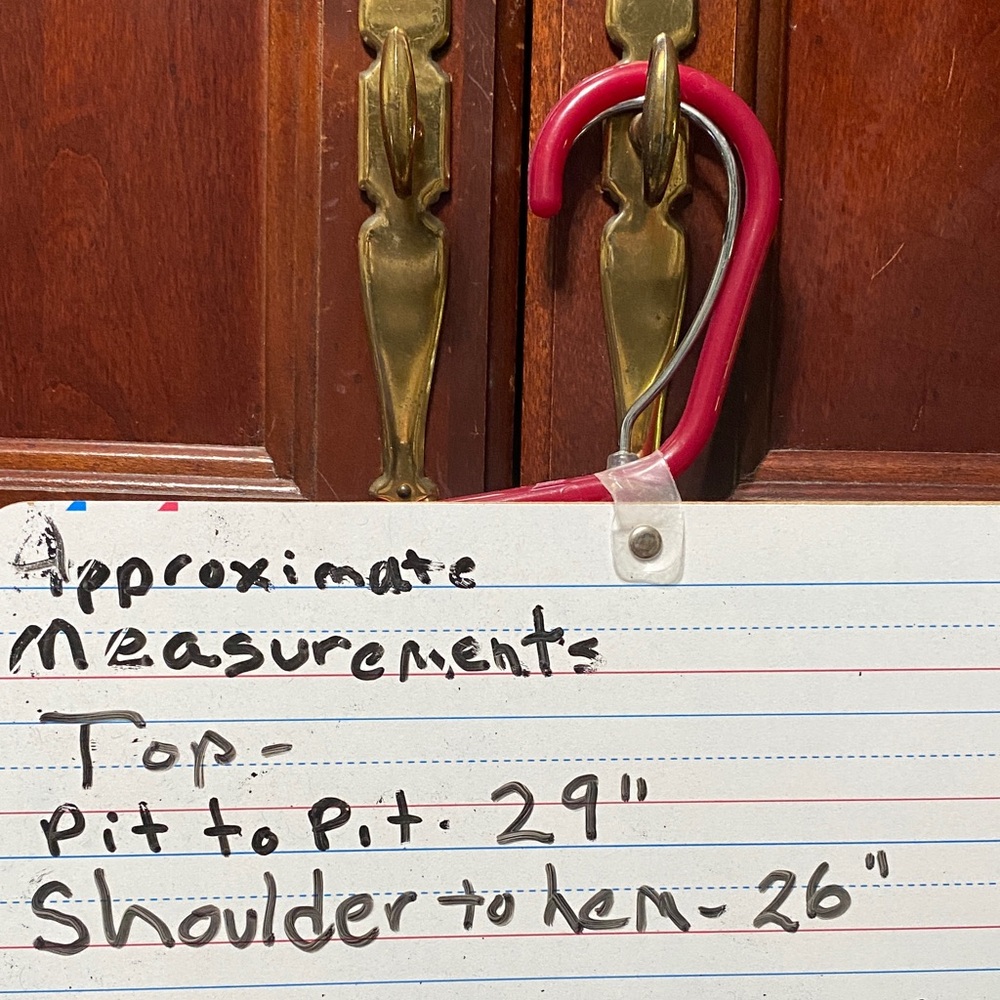 Approximate
Measurements
Top-
Pit to Pit. 29"
Shoulder to hem - 26"